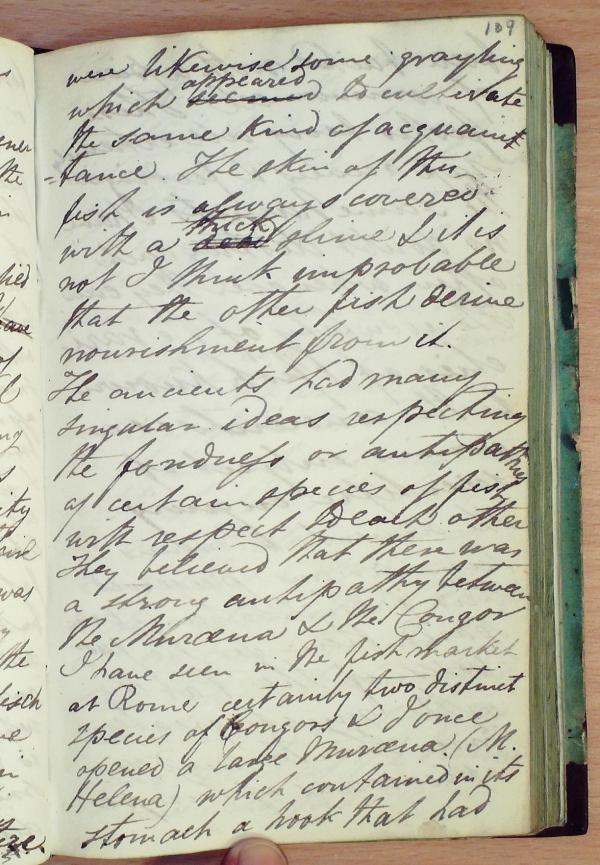 109
were likewise some grayling
which appeared seemed to cultivate
the same kind of acquain
=tance. The skin of this
fish is always covered
with a thick slime & it is
not I think improbable
that the other fish derive
nourishment from it.
The ancients had many
singular ideas respecting
the fondness or antipathy
of certain species of fish
with respect to each other
They believed that there was
a strong antipathy between
the Muræna & the Congor
I have seen in the fish market
at Rome certainly two distinct
species of Congors & I once
opened a large Muræna (M.
Helena) which contained in its
stomach a hook that had